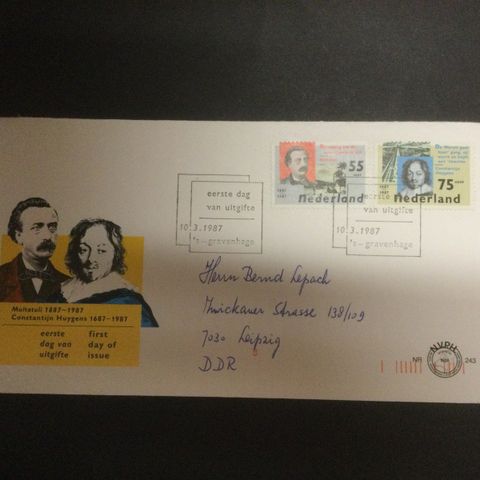 55 cent
1887
1987
Nederland
75 cent
Nederland
eerste dag
van uitgifte
10.3.1987
's-gravenhage
eerste dag
van uitgifte
10.3.1987
's-gravenhage
Herrn Bernd Lepach
Zwickauer Strasse 138/109
7030 Leipzig
DDR
Multatuli 1887-1987
Constantijn Huygens 1687-1987
eerste first
dag van day of
uitgifte issue
NVPH
NR 243